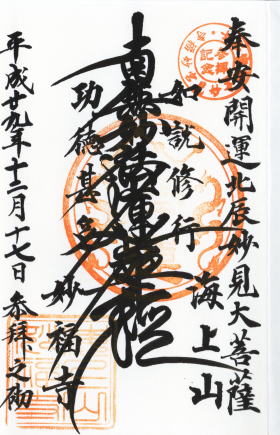 奉安開運北辰妙見大菩薩
海上山
如説修行
南無妙法蓮華経
功徳甚多
妙福寺
平成廿九年十二月十七日 参拝之砌